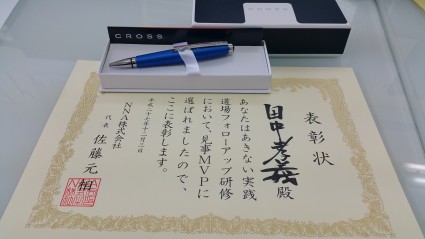 CROSS
CROSS
表彰状
田中孝義 殿
あなたはあきない実践
道場フォローアップ研修
において、見事MVPに
選ばれましたので、
ここに表彰します。
平成二十七年十二月二日
NNA株式会社
代表 佐藤元相